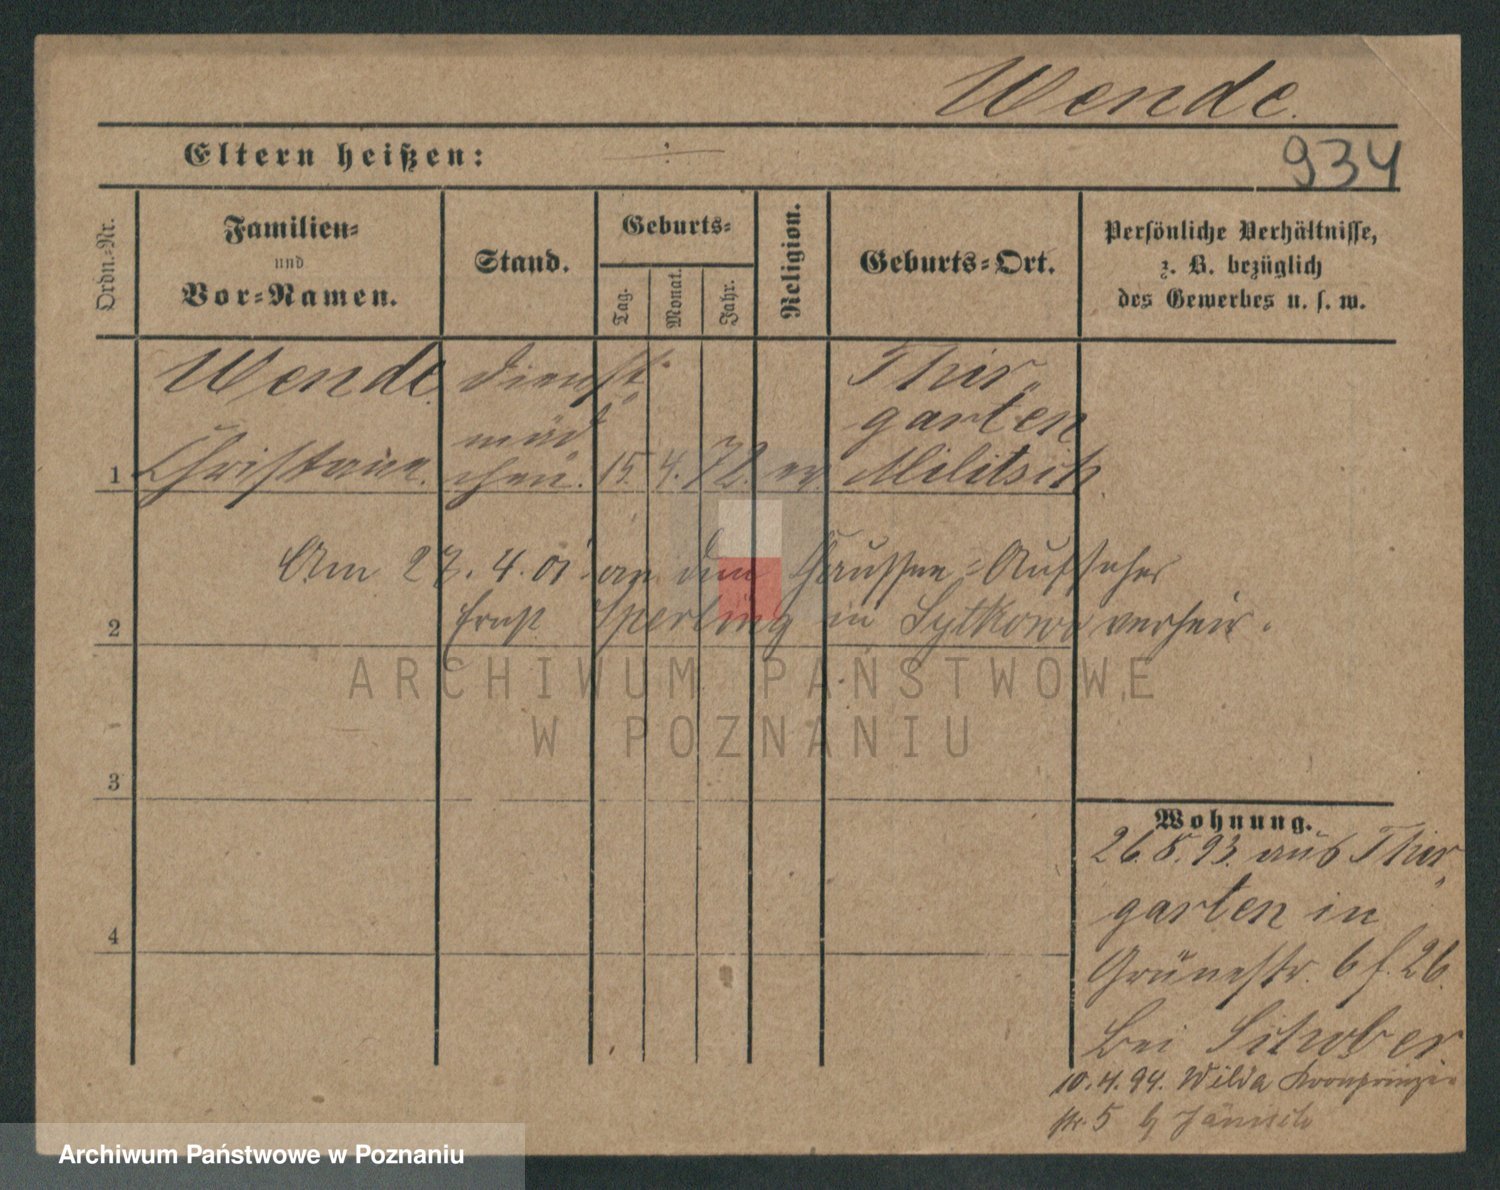 Wende.
Eltern heißen:
934
Ordn.-Nr.
Familien-
und
Vor-Namen.
Stand.
Geburts-
Tag.
Monat.
Jahr.
Religion.
Geburts-Ort.
Persönliche Verhältnisse,
z. B. bezüglich
des Gewerbes u. s. w.
Wende
Christiane.
Dienst-
mäd
chen.
1
15. 4. 72. ev
Thier-
garten
Militsch
Am 27. 4. 01 an den Chaussee-Aufseher
2
Ernst Sperling in Sytkowo verheir.
ARCHIWUM PAŃSTWOWE
W POZNANIU
3
4
Wohnung.
26.8.93. aus Thier-
garten in
Grünestr. 6 f. 26.
bei Schober
10.4.94. Wilda Kronprinzen
str. 5 b Jänsch
Archiwum Państwowe w Poznaniu